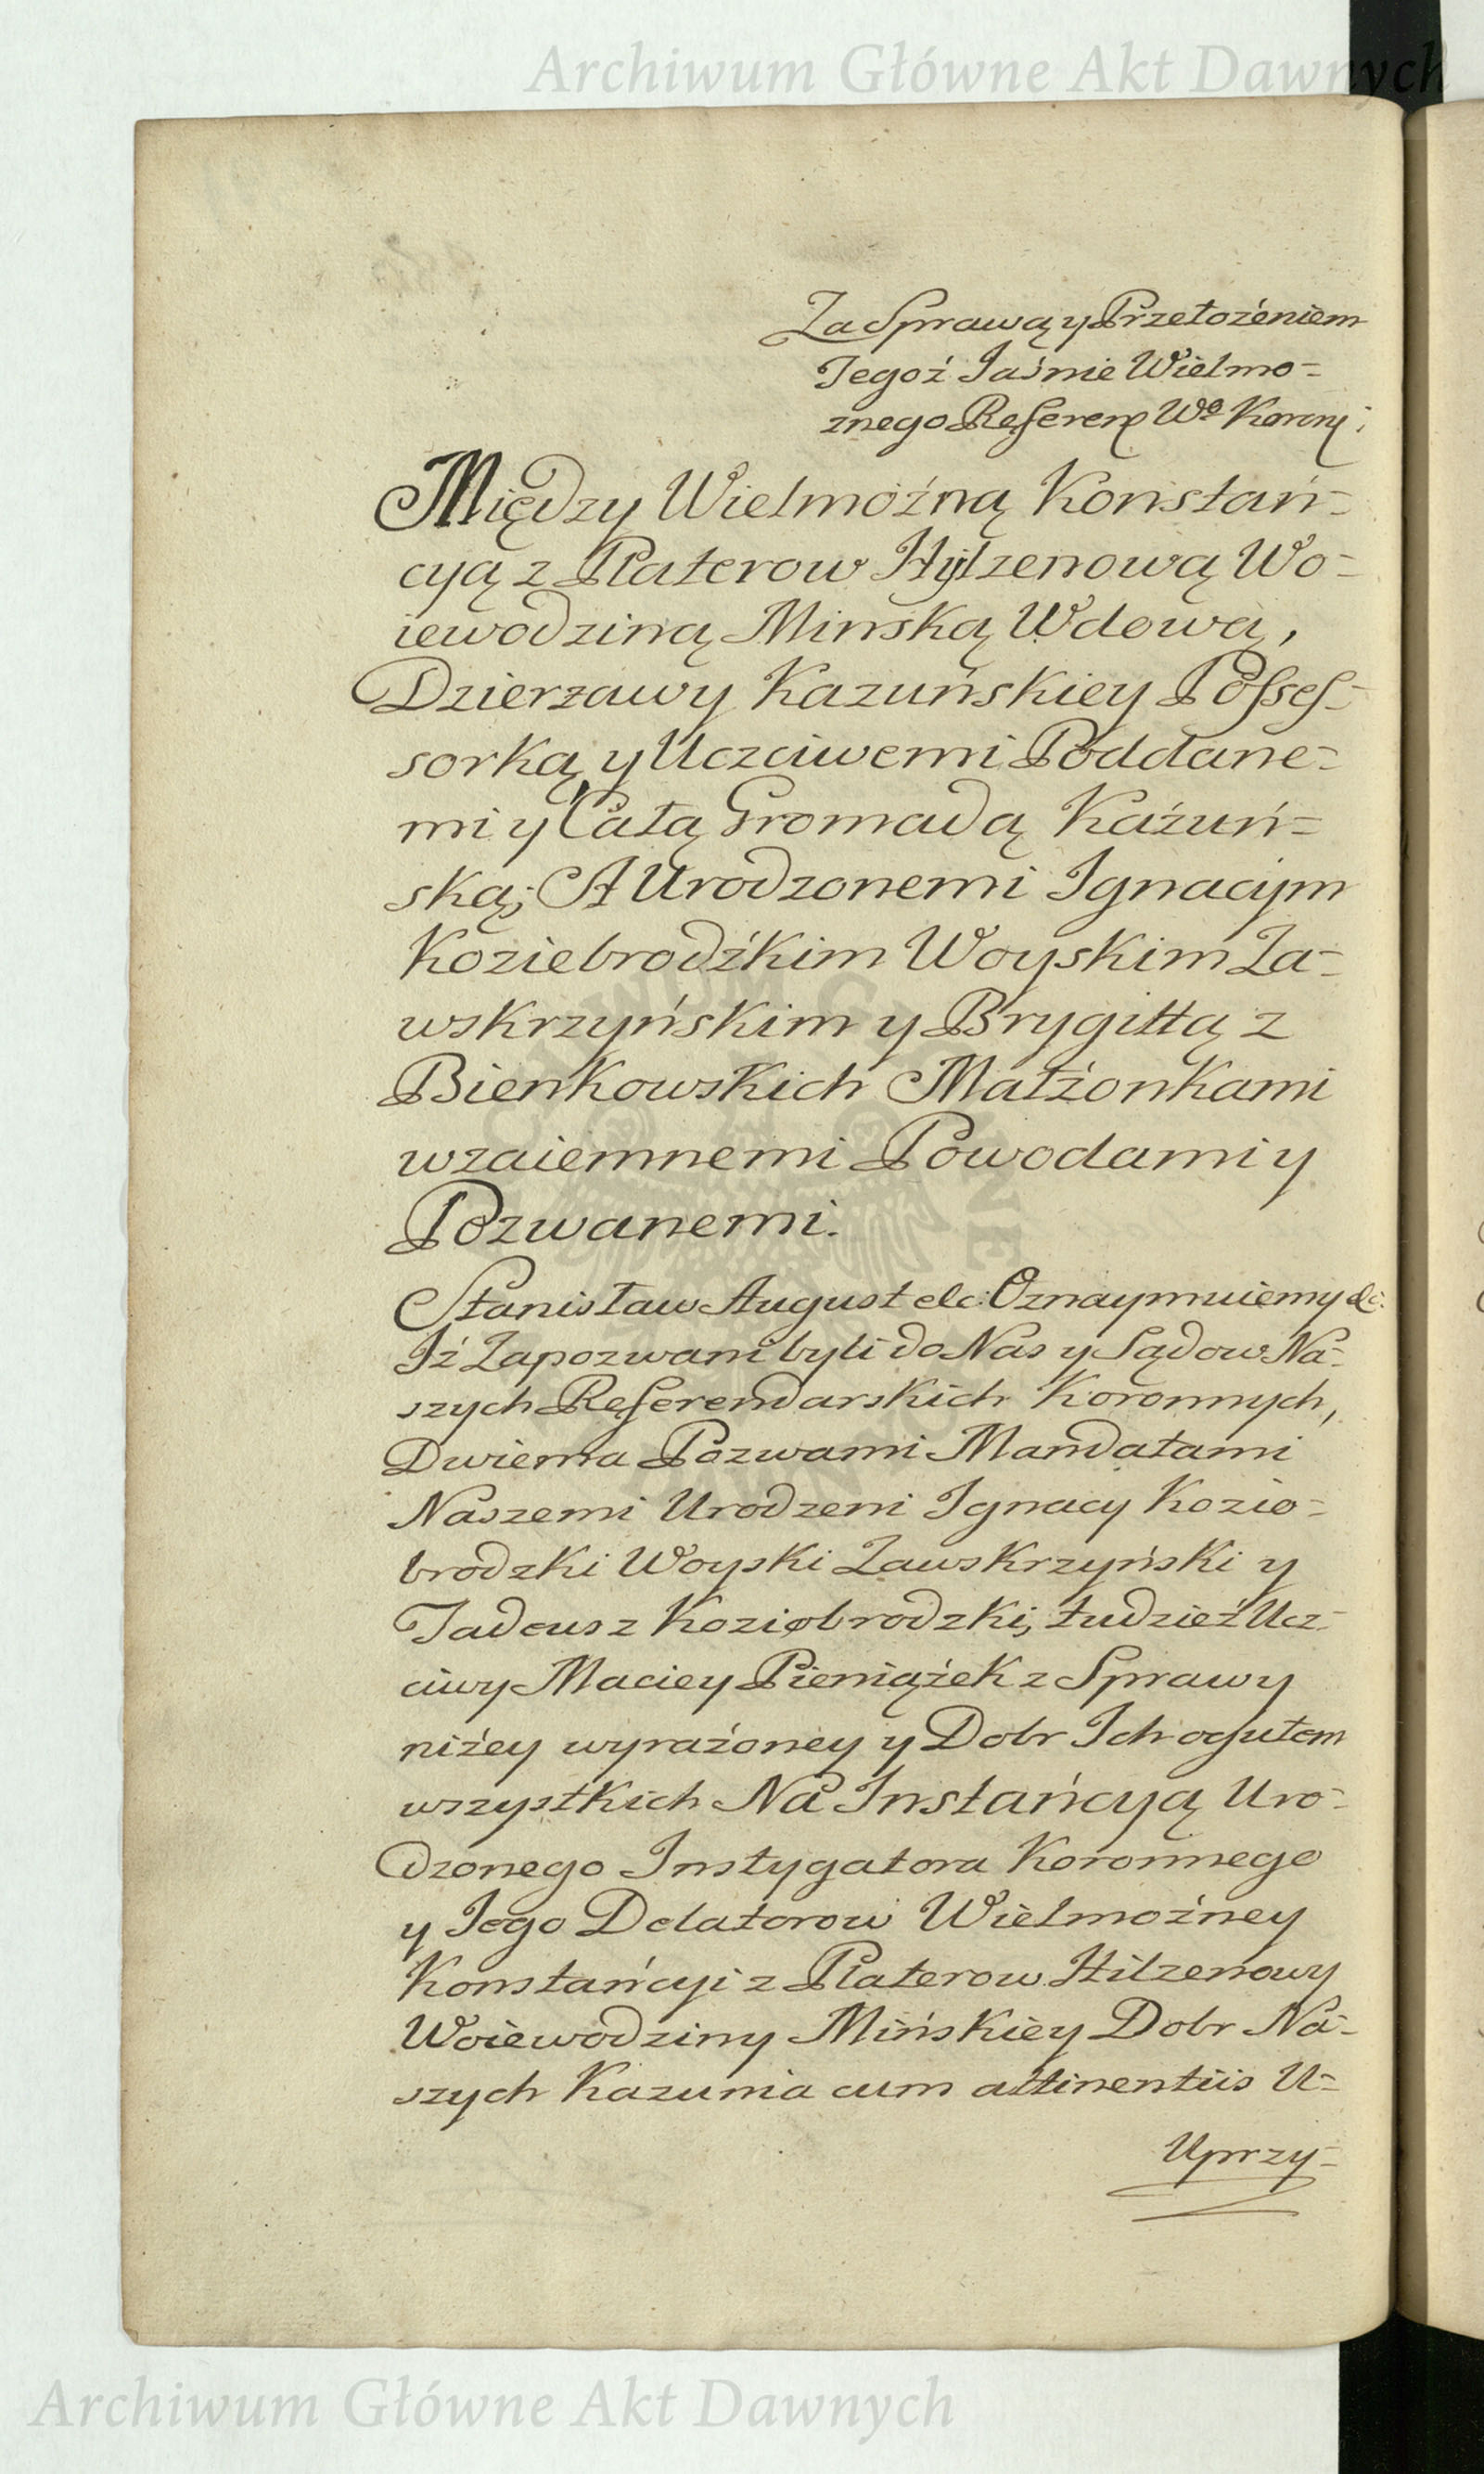 Archiwum Główne Akt Dawnych
Za Sprawą y Przełożeniem
Jegoż Jaśnie Wielmo=
znego Referen Wo Koron:
Między Wielmożną Konstań=
cyą z Platerow Hylzenową Wo=
iewodziną Minską Wdową,
Dzierzawy Kazuńskiey Posses=
sorką y Uczciwemi Poddane=
mi y Całą Gromadą Kaźuń=
ską; A Urodzonemi Ignacym
Koziebrodźkim Woyskim Za=
wskrzyńskim y Brygittą z
Bienkowskich Małżonkami
wzaiemnemi Powodami y
Pozwanemi.
Stanisław August etc: Oznaymuiemy etc:
Iż Zapozwani byli do Nas y Sądow Na=
szych Referendarskich Koronnych,
Dwiema Pozwami Mandatami
Naszemi Urodzeni Ignacy Kozio=
brodzki Woyski Zawskrzyński y
Tadeusz Koziobrodzki, tudzież Ucz=
ciwy Maciey Pieniążek z Sprawy
niżey wyrażoney y Dobr Ich ogułem
wszystkich Na Instańcyą Uro=
dzonego Instygatora Koronnego
y Jego Delatorow Wielmożney
Konstańcyi z Platerow Hilzenowy
Woiewodziny Mińskiey Dobr Na=
szych Kazunia cum attinentiis U=
Uprzy=
Archiwum Główne Akt Dawnych